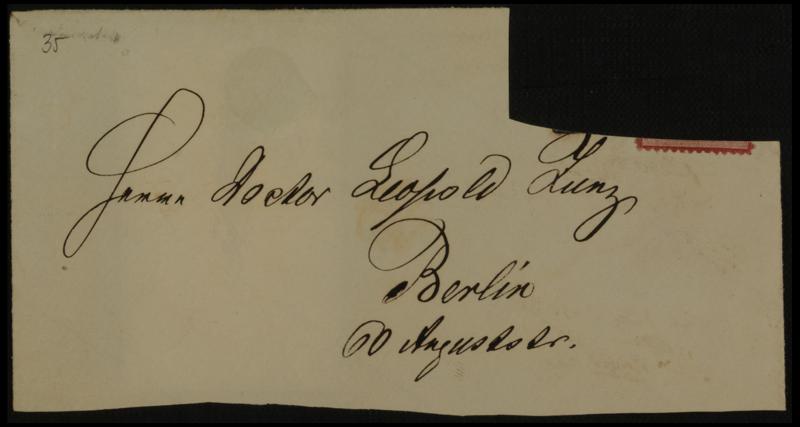 35
Herrn Doctor Leopold Zunz
Berlin
60 Auguststr.